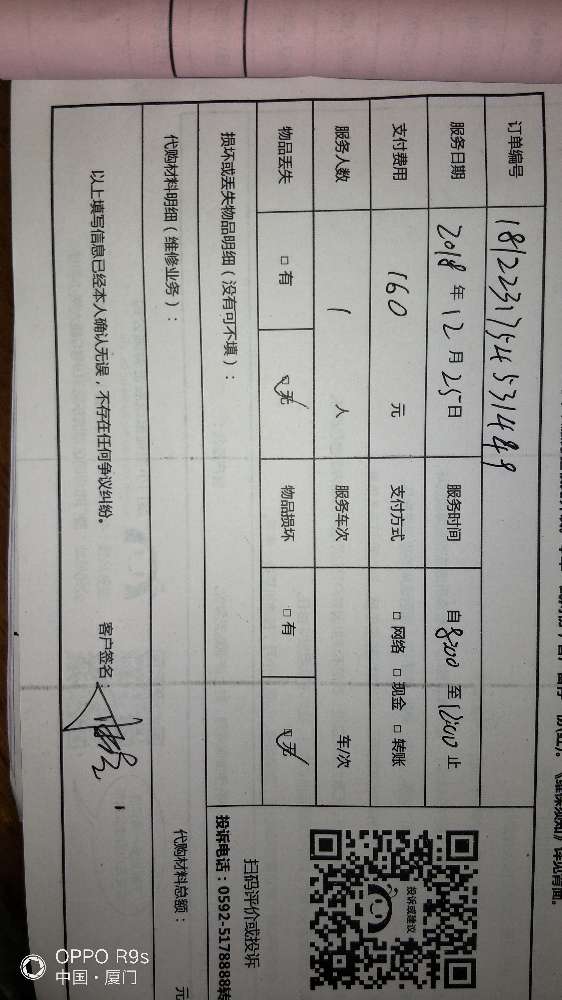 订单编号 18122317545314449
服务日期 2018 年 12 月 25 日 服务时间 自 8:00 至 12:00 止
支付费用 160 元 支付方式 □ 网络 □ 现金 □ 转账
服务人数 1 人 服务车次 车/次
物品丢失 □ 有 □ 无 物品损坏 □ 有 □ 无
损坏或丢失物品明细（没有可不填）：
代购材料明细（维修业务）： 代购材料总额： 元
以上填写信息已经本人确认无误，不存在任何争议纠纷。 客户签名：
投诉或建议
扫码评价或投诉
投诉电话：0592-5178888转
OPPO R9s
中国·厦门